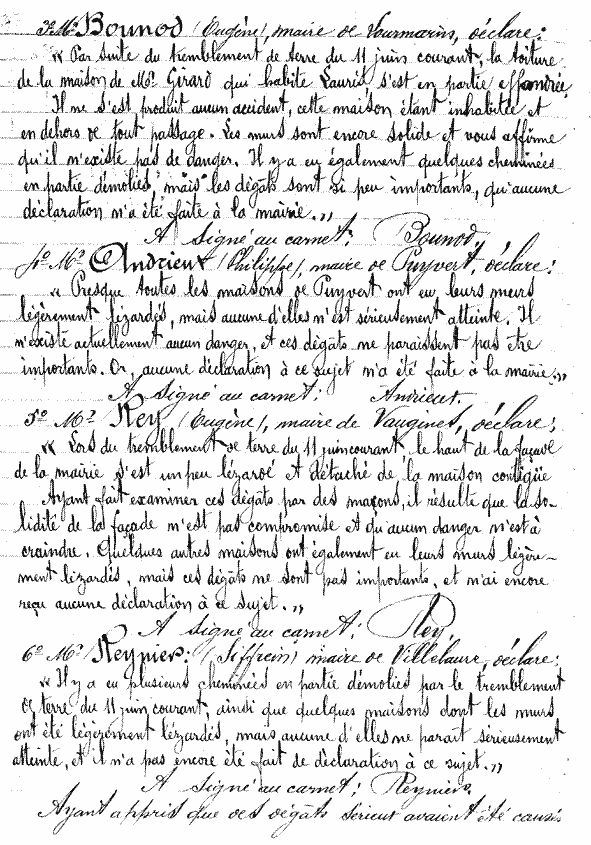 3º Mr Bounod (Eugène), maire de Lourmarin, déclare:
« Par suite du tremblement de terre du 11 juin courant, la toiture
de la maison de Mr Girard qui habite Lauris s'est en partie effondrée.
Il ne s'est produit aucun accident, cette maison étant inhabitée et
en dehors de tout passage. Les murs sont encore solide et vous affirme
qu'il n'existe pas de danger. Il y a eu également quelques cheminées
en partie démolies, mais les dégâts sont si peu importants, qu'aucune
déclaration n'a été faite à la mairie. »
A signé au carnet: Bounod.
4º Mr Andrieux (Philippe), maire de Puyvert, déclare:
« Presque toutes les maisons de Puyvert ont eu leurs murs
légèrement lézardés, mais aucune d'elles n'est sérieusement atteinte. Il
n'existe actuellement aucun danger, et ces dégâts ne paraissent pas être
importants. Or, aucune déclaration à ce sujet n'a été faite à la mairie. »
A signé au carnet: Andrieux.
5º Mr Rey (Eugène), maire de Vaugines, déclare:
« Lors du tremblement de terre du 11 juin courant, le haut de la façade
de la mairie s'est un peu lézardé et détaché de la maison contigüe
Ayant fait examiner ces dégâts par des maçons, il résulte que la so-
lidité de la façade n'est pas compromise et qu'aucun danger n'est à
craindre. Quelques autres maisons ont également eu leurs murs légère-
ment lézardés, mais ces dégâts ne sont pas importants, et n'ai encore
reçu aucune déclaration à ce sujet. »
A signé au carnet: Rey.
6º Mr Reynier: (Siffrein) maire de Villelaure, déclare:
« Il y a eu plusieurs cheminées en partie démolies par le tremblement
de terre du 11 juin courant, ainsi que quelques maisons dont les murs
ont été légèrement lézardés, mais aucune d'elles ne parait sérieusement
atteinte, et il n'a pas encore été fait de déclaration à ce sujet. »
A signé au carnet: Reynier.
Ayant appris que des dégâts sérieux avaient été causés